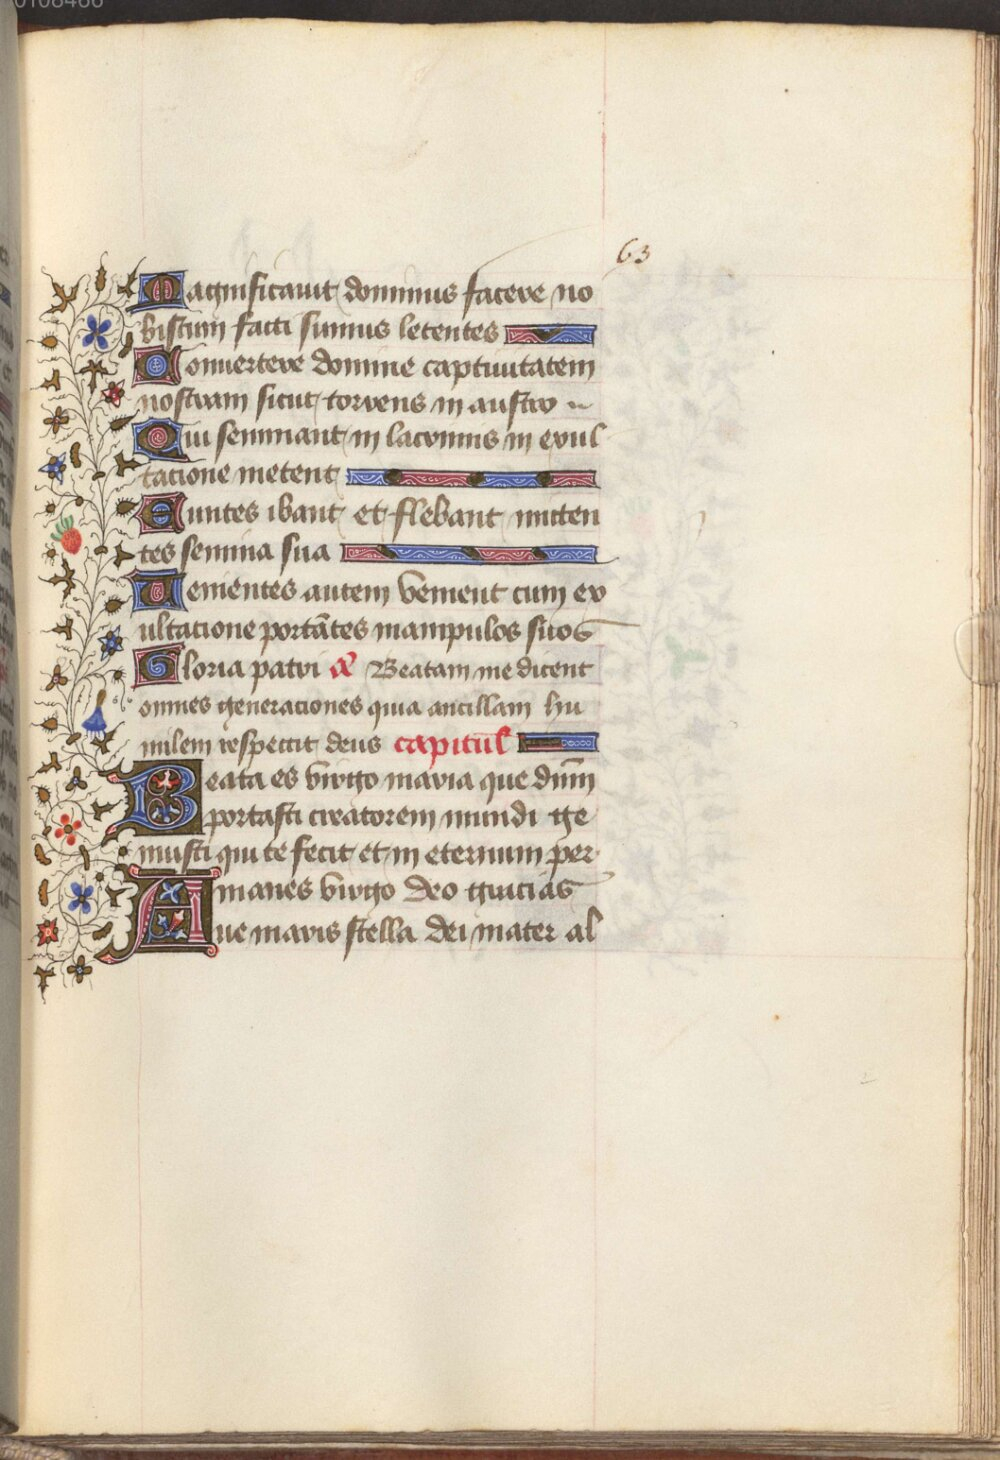 0108466
63
Magnificavit dominus facere no
biscum facti sumus letentes
Convertere domine captivitatem
nostram sicut torrens in austro
Qui seminant in lacrimis in exul
tacione metent
Euntes ibant et flebant mitten
tes semina sua
Venientes autem venient cum ex
ultacione portātes manipulos suos
Gloria patri &c Beatam me dicent
omnes generaciones quia ancillam hu
milem respexit deus capitul̄
Beata es virgo maria que dn̄m
portasti creatorem mundi ge
nuisti qui te fecit et in eternum per
manes virgo deo gracias
Ave maris stella dei mater al